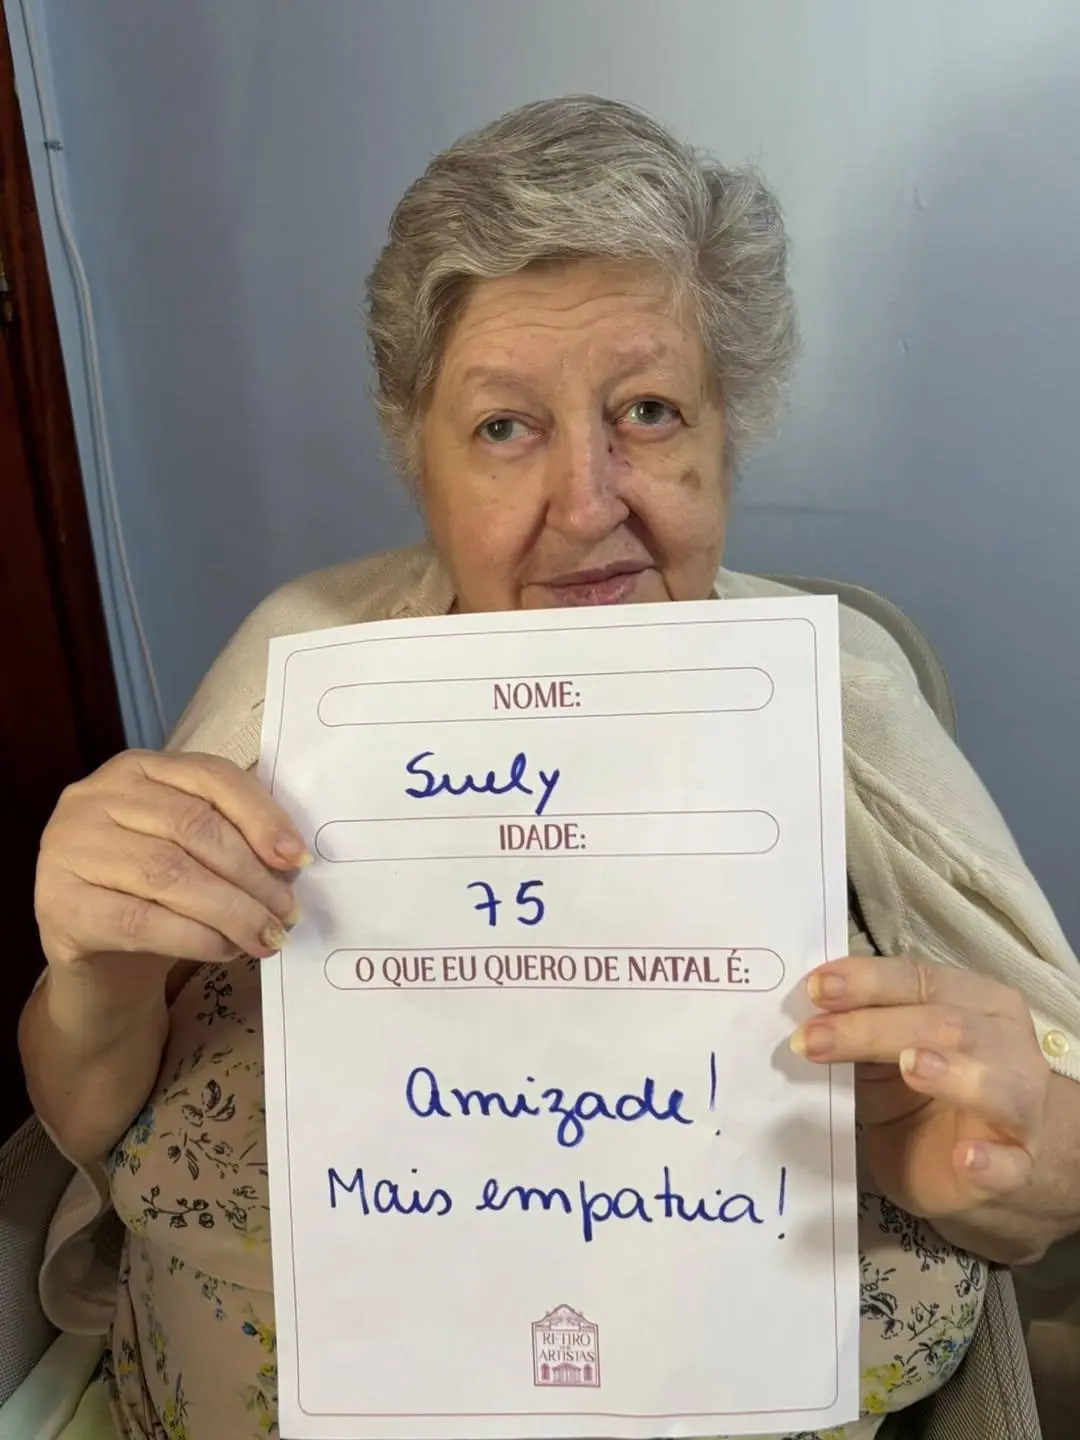 NOME:
Suely
IDADE:
75
O QUE EU QUERO DE NATAL É:
Amizade!
Mais empatia!
RETIRO
DOS
ARTISTAS